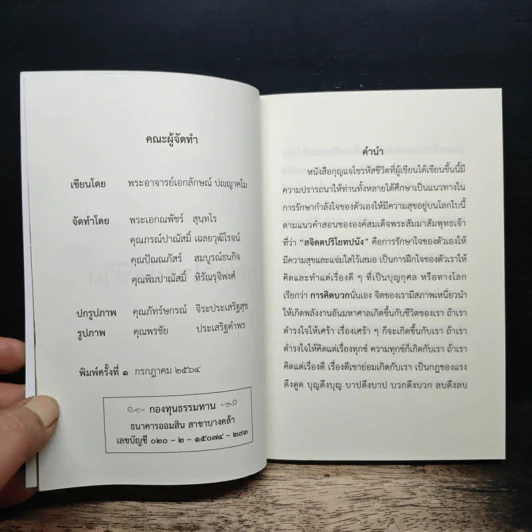 คณะผู้จัดทำ
เขียนโดย พระอาจารย์เอกลักษณ์ ปญฺญาคโม
จัดทำโดย พระเอกณพัชร์ สุนฺทโร
คุณภรณ์ปาณัสมิ์ เฉลยวุฒิโรจน์
คุณปัณณภัสร์ สมบูรณ์ธนกิจ
คุณพิมปาณัสมิ์ หิรัณรุจิพงศ์
ปกรูปภาพ คุณภัทร์ษกรณ์ จิระประเสริฐสุข
รูปภาพ คุณพรชัย ประเสริฐคำพร
พิมพ์ครั้งที่ ๑ กรกฎาคม ๒๕๖๔
กองทุนธรรมทาน
ธนาคารออมสิน สาขาบางคล้า
เลขบัญชี ๐๒๐ – ๒ – ๑๕๐๗๔ – ๒๙๓
คำนำ
หนังสือกุญแจไขรหัสชีวิตที่ผู้เขียนได้เขียนขึ้นนี้มี
ความปรารถนาให้ท่านทั้งหลายได้ศึกษาเป็นแนวทางใน
การรักษากำลังใจของตัวเองให้มีความสุขอยู่บนโลกใบนี้
ตามแนวคำสอนขององค์สมเด็จพระสัมมาสัมพุทธเจ้า
ที่ว่า “สจิตตปริโยทปนัง” คือการรักษาใจของตัวเองให้
มีความสุขและแจ่มใสไว้เสมอ เป็นการฝึกใจของตัวเราให้
คิดและทำแต่เรื่องดี ๆ ที่เป็นบุญกุศล หรือทางโลก
เรียกว่า การคิดบวกนั่นเอง จิตของเรามีสภาพเหนี่ยวนำ
ให้เกิดพลังงานอันมหาศาลขึ้นกับชีวิตของเรา ถ้าเรา
ดำรงใจให้เศร้า เรื่องเศร้า ๆ ก็จะเกิดขึ้นกับเรา ถ้าเรา
ดำรงใจให้คิดแต่เรื่องทุกข์ ความทุกข์ก็เกิดกับเรา ถ้าเรา
คิดแต่เรื่องดี เรื่องดีเขาย่อมเกิดกับเรา เป็นกฎของแรง
ดึงดูด บุญดึงบุญ บาปดึงบาป บวกดึงบวก ลบดึงลบ